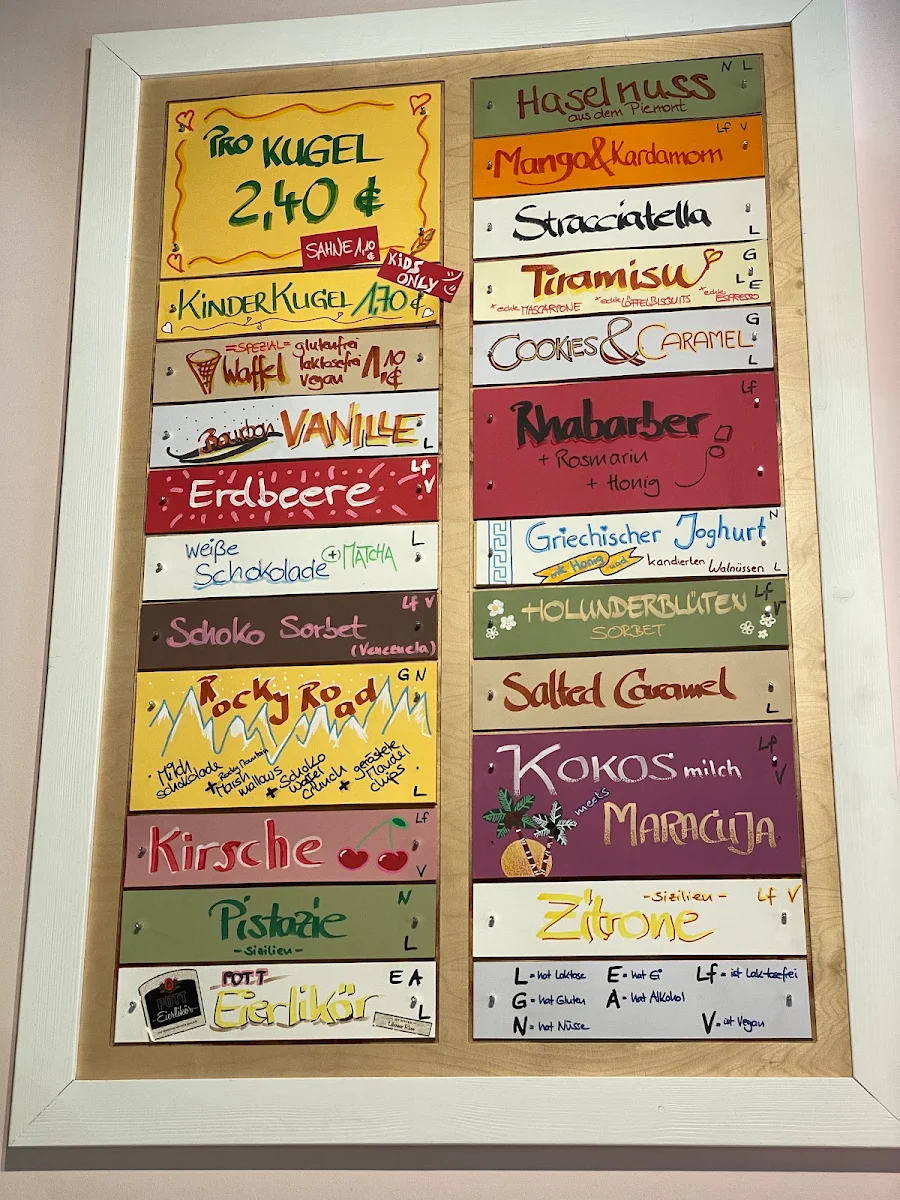 PRO KUGEL
2,40 €
SAHNE 1,10 €
KIDS ONLY
KINDERKUGEL 1,70 €
=SPEZIAL= glutenfrei
Waffel laktosefrei 1,10 €
vegan
Bourbon VANILLE L
Erdbeere Lf V
weiße Schokolade + MATCHA L
Schoko Sorbet Lf V
(Venezuela)
Rocky Road G N
Milch schokolade + Rocky Mountain Marsh mallows + Schoko waffel Crunch + geröstete Mandel chips
L
Kirsche Lf V
Pistazie N
-Sizilien- L
POTT E A
POTT Eierlikör
Eierlikör L
Haselnuss N L
aus dem Piemont
Mango&Kardamom Lf V
Stracciatella L
Tiramisu G L E
*echte MASCARPONE *echte LÖFFELBISQUITS *echte ESPRESSO
COOKIES & CARAMEL G L
Rhabarber Lf
+ Rosmarin
+ Honig
Griechischer Joghurt N
mit Honig und kandierten Walnüssen L
HOLUNDERBLÜTEN Lf V
SORBET
Salted Caramel L
KOKOS milch Lf V
meets
MARACUJA
-Sizilien- Lf V
Zitrone
L = hat Laktose E = hat Ei Lf = ist Laktosefrei
G = hat Gluten A = hat Alkohol
N = hat Nüsse V = ist Vegan